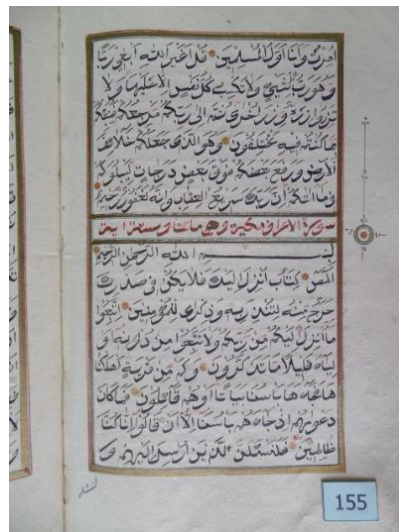 امرت وانا اول المسلمين قل اغير الله ابغي ربا
وهو رب كل شيء ولا تكسب كل نفس الا عليها ولا
تزر وازرة وزر اخرى ثم الى ربكم مرجعكم فينبئكم
بما كنتم فيه تختلفون وهو الذي جعلكم خلائف
الارض ورفع بعضكم فوق بعض درجات ليبلوكم
في ما اتيكم ان ربك سريع العقاب وانه لغفور رحيم
سورة الاعراف مكية وهي مائتان وست اية
بسم الله الرحمن الرحيم
المص كتاب انزل اليك فلا يكن في صدرك
حرج منه لتنذر به وذكرى للمؤمنين اتبعوا
ما انزل اليكم من ربكم ولا تتبعوا من دونه او
لياء قليلا ما تذكرون وكم من قرية اهلكنا
ها فجاءها باسنا بياتا او هم قائلون فما كان
دعويهم اذ جاءهم باسنا الا ان قالوا انا كنا
ظالمين فلنسئلن الذين ارسل اليهم و
155